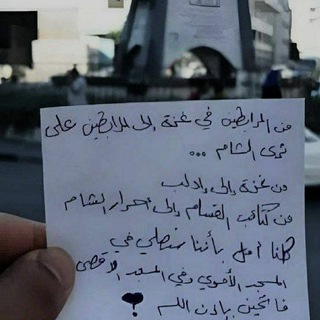 من المرابطين في غزة إلى المرابطين على
ثرى الشام ...
من غزة وإلى إدلب
من كتائب القسام وإلى أحرار الشام
كلنا أمل بأننا سنصلي في
المسجد الأموي وفي المسجد الأقصى
فاتحين بإذن الله